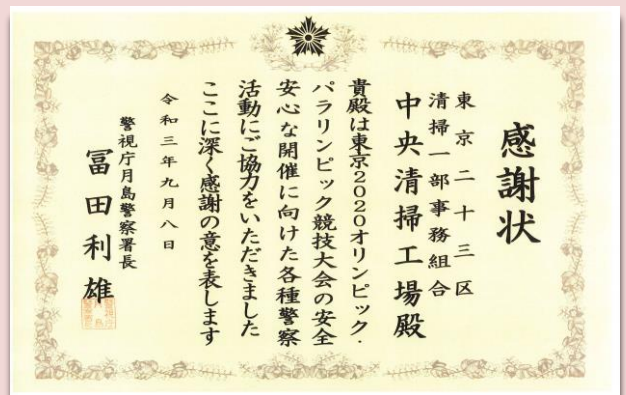 感謝状
東京二十三区
清掃一部事務組合
中央清掃工場殿
貴殿は東京2020オリンピック・
パラリンピック競技大会の安全
安心な開催に向けた各種警察
活動にご協力をいただきました
ここに深く感謝の意を表します
令和三年九月八日
警視庁月島警察署長
冨田利雄